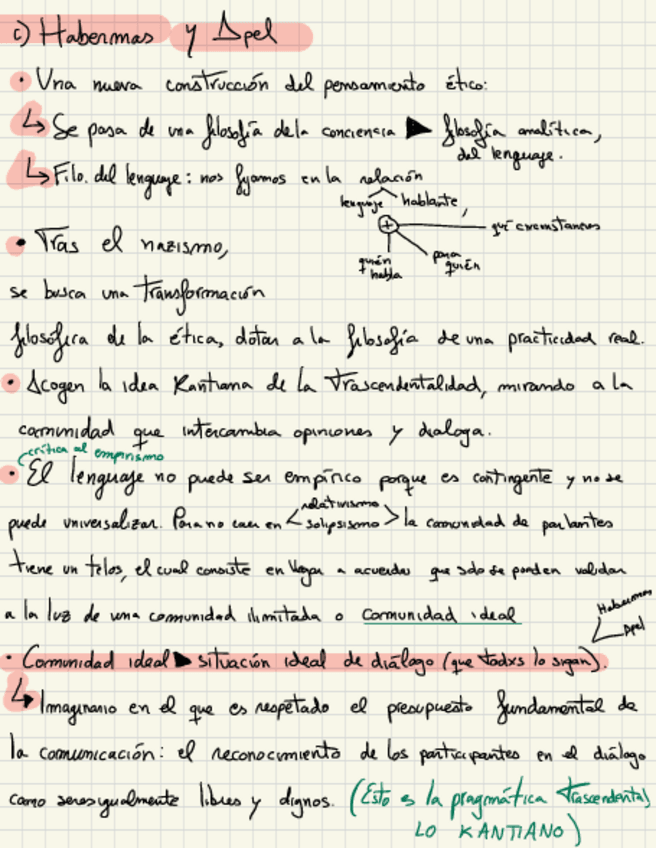 c) Habermas y Apel
• Una nueva construcción del pensamiento ético:
↳ Se pasa de una filosofía de la conciencia ▶ filosofía analítica,
del lenguaje.
↳ Filo. del lenguaje: nos fijamos en la relación
lenguaje hablante,
+ qué circunstancias
quién habla
para quién
• Tras el nazismo,
se busca una transformación
filosófica de la ética, dotar a la filosofía de una practicidad real.
• Acogen la idea Kantiana de la Trascendentalidad, mirando a la
comunidad que intercambia opiniones y dialoga.
crítica al empirismo
• El lenguaje no puede ser empírico porque es contingente y no se
puede universalizar. Para no caer en < relativismo
solipsismo > la comunidad de parlantes
tiene un telos, el cual consiste en llegar a acuerdos que solo se pueden validar
a la luz de una comunidad ilimitada o comunidad ideal
Habermas
Apel
• Comunidad ideal ▶ situación ideal de diálogo (que todxs lo sigan).
↳ Imaginario en el que es respetado el presupuesto fundamental de
la comunicación: el reconocimiento de los participantes en el diálogo
como seres igualmente libres y dignos. (Esto es la pragmática Trascendental,
LO KANTIANO)